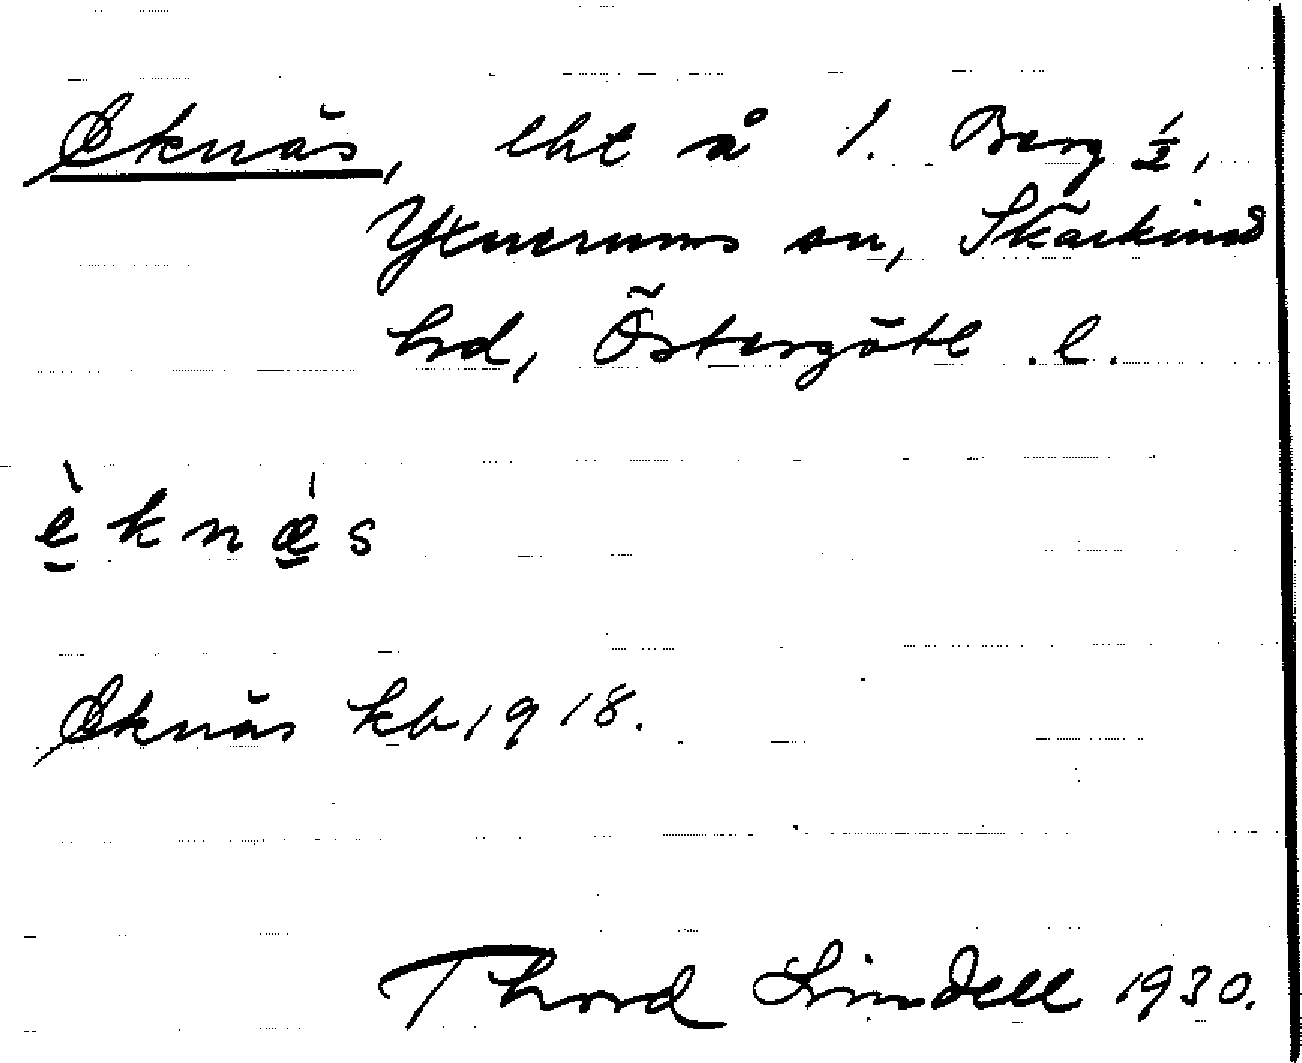 Eknäs, lht å 1. Berg 1/2,
Yxnerums sn, Skärkind
hd, Östergötl. l.
è̱ knǽ̱s
Eknäs kb 1918.
Thord Lindell 1930.